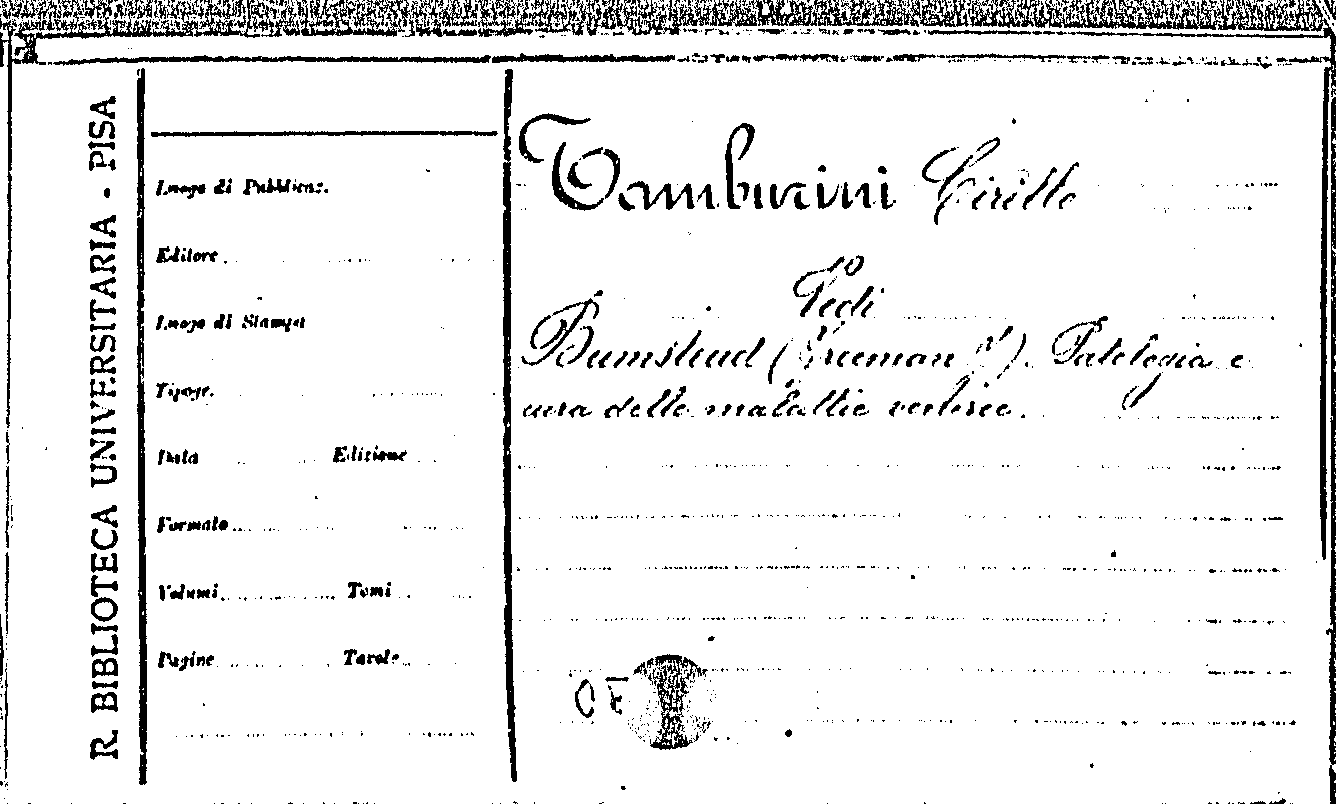 R. BIBLIOTECA UNIVERSITARIA - PISA
Luogo di Pubblicaz.
Editore
Luogo di Stampa
Tipogr.
Data Edizione
Formato
Volumi Tomi
Pagine Tavole
Tamburini Cirillo
Vedi
Bumstead (Freeman J). Patologia e
cura delle malattie veneree.
CE